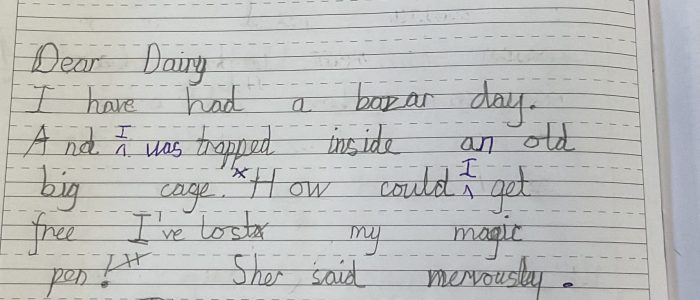 Dear Dairy
I have had a bazar day.
And I was trapped inside an old
big cage. How could I get
free I've lost my magic
pen! Sher said mervously.